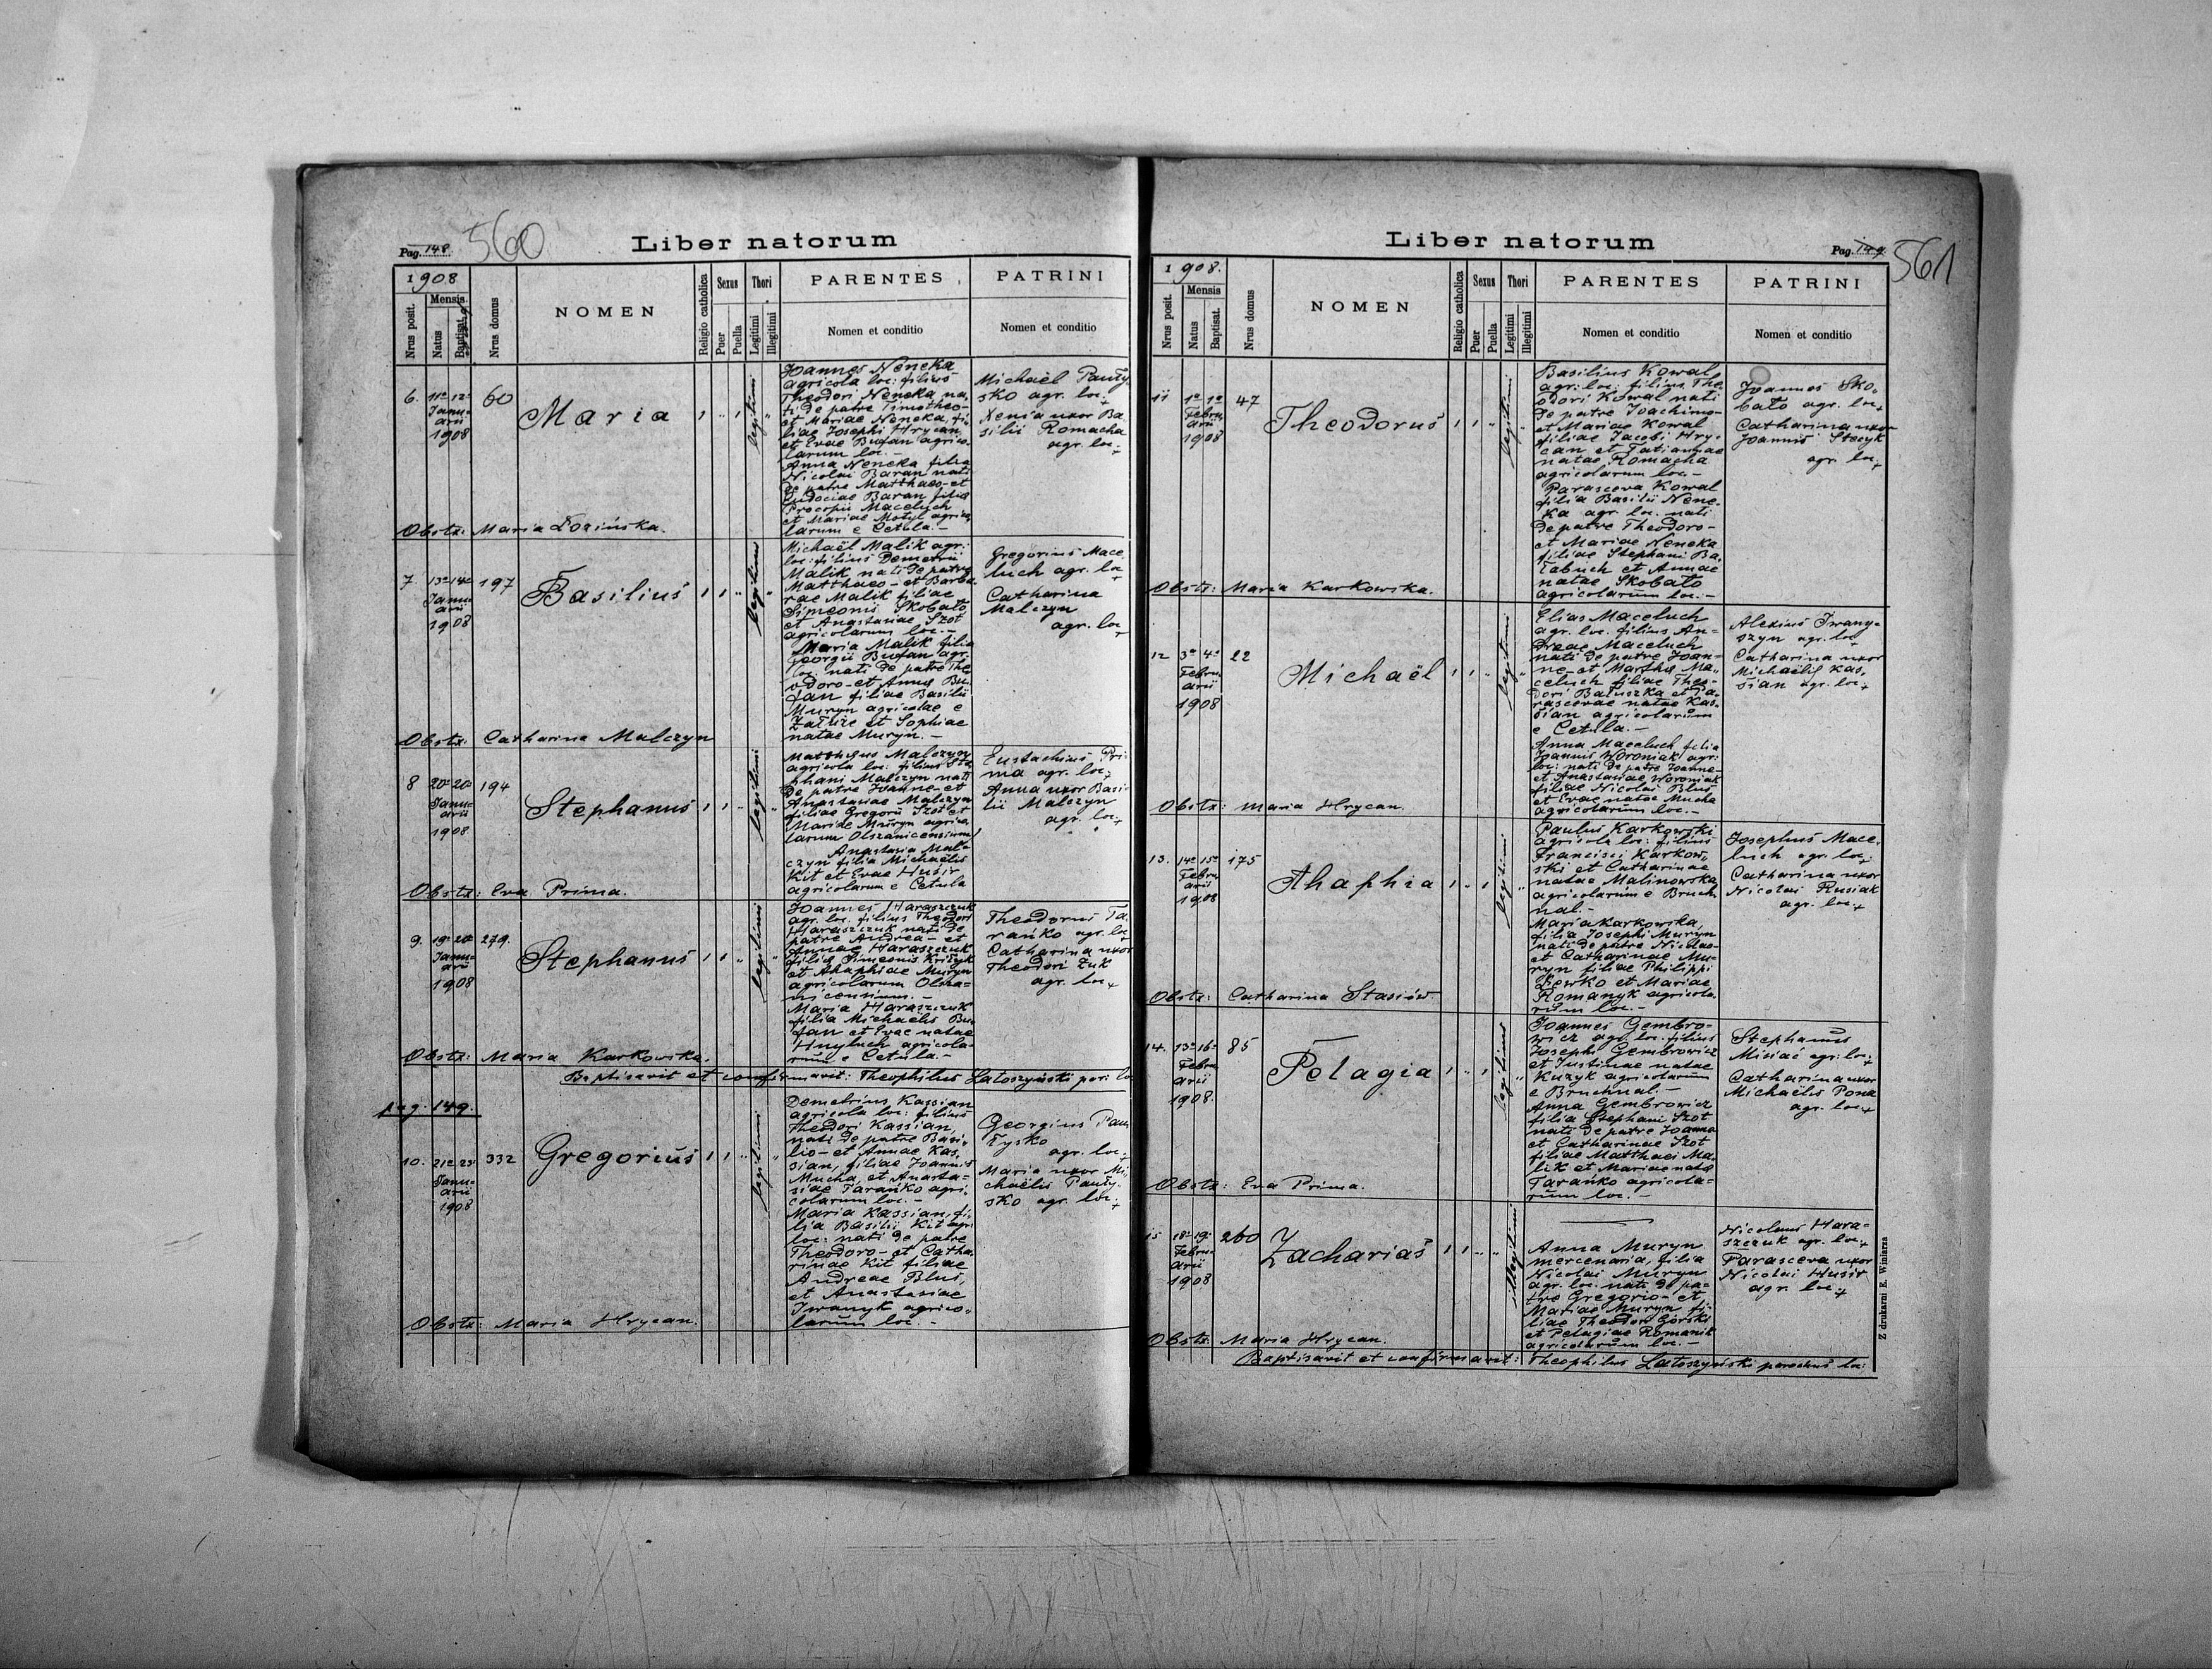 Pag. 148
560
Liber natorum
1908
Nrus posit.
Mensis
Natus
Baptisat.
Nrus domus
NOMEN
Religio catholica
Sexus
Puer
Puella
Thori
Legitimi
Illegitimi
PARENTES
Nomen et conditio
PATRINI
Nomen et conditio
6. 11a 12a
Janu-
arii
1908
60
Maria
legitimi
Joannes Neneka
agricola loc: filius
Theodori Neneka na-
ti de patre Timotheo-
et Mariae Neneka, fi-
liae Josephi Hrycan
et Evae Bucfan agrico-
larum loc. -
Anna Neneka filia
Nicolai Baran nati
de patre Matthaeo - et
Eudociae Baran filiae
Procopii Maceluch
et Mariae Motyl agrico-
larum e Cetula. -
Michaël Pauły-
sko agr. loc. +
Xenia uxor Ba-
silii Romacha
agr. loc. +
Obstx: Maria Łozińska.
7. 13a 14a
Janu-
arii
1908
197
Basilius
legitimi
Michaël Malik agr.
loc: filius Demetrii
Malik nati de patre
Matthaeo - et Barba-
rae Malik filiae
Simeonis Skobało
et Anastasiae Szot
agricolarum loc. -
Maria Malik filia
Georgii agr.
loc. nati de patre The-
odoro - et Annae
filiae Basilii
Muryn agricolae e
Załuże et Sophiae
natae Muryn. -
Gregorius Mace-
luch agr. loc +
Catharina
Malczyn
agr. loc +
Obstx: Catharina Malczyn
8 20a 20a
Janu-
arii
1908
194
Stephanus
legitimi
Matthaeus Malczyn
agricola loc: filius Ste-
phani Malczyn nati
de patre Joanne - et
Anastasiae Malczyn
filiae Gregorii Szot et
Mariae Muryn agrico-
larum Olszanicensium
Anastasia Mal-
czyn filia Michaëlis
Kit et Evae Husir
agricolarum e Cetula
Eustachius Pri-
ma agr. loc. +
Anna uxor Basi-
lii Malczyn
agr. loc. +
Obstx: Eva Prima.
9. 19a 20a
Janu-
arii
1908
279.
Stephanus
legitimi
Joannes Haraszczuk
agr. loc. filius Theodori
Haraszczuk nati de
patre Andrea - et
Annae Haraszczuk
filiae Simeonis
et Ahaphiae Muryn
agricolarum Olsza-
nicensium. -
Maria Haraszczuk
filia Michaëlis
et Evae natae
Hnyluch agricola-
rum e Cetula. -
Theodorus Ta-
rańko agr. loc +
Catharina uxor
Theodori Żuk
agr. loc +
Obstx: Maria Karkowska.
Baptisavit et confirmavit: Theophilus Łatoszyński par: lo
pag: 149.
10. 21a
Janu-
arii
1908
332
Gregorius
legitimi
Demetrius Kassian
agricola loc: filius
Theodori Kassian,
nati de patre Basi-
lio - et Annae Kas-
sian, filiae Joannis
Mucha, et Anasta-
siae Tarańko agri-
colarum loc. -
Maria Kassian, fi-
lia Basilii Kit agr.
loc: nati de patre
Theodoro - et Catha-
rinae Kit filiae
Andreae Blus,
et Anastasiae
Iwanyk agrico-
larum loc -
Georgius Pau-
łysko
agr. loc. +
Maria uxor Mi-
chaëlis Pauły-
sko agr. loc. +
Obstx: Maria Hrycan.
Liber natorum
Pag. 149
561
1908.
Nrus posit.
Mensis
Natus
Baptisat.
Nrus domus
NOMEN
Religio catholica
Sexus
Puer
Puella
Thori
Legitimi
Illegitimi
PARENTES
Nomen et conditio
PATRINI
Nomen et conditio
11 1a 1a
Febru-
arii
1908
47
Theodorus
legitimi
Basilius Kowal
agr. loc: filius The-
odori Kowal nati
de patre Joachimo -
et Mariae Kowal
filiae Jacobi Hry-
can et Tatiannae
natae Romacha
agricolarum loc. -
Parasceva Kowal
filia Basilii Nene-
ka agr. loc. nati
de patre Theodoro -
et Mariae Neneka
filiae Stephani Ba-
łabuch et Annae
natae Skobało
agricolarum loc. -
Joannes Sko-
bało agr. loc +
Catharina uxor
Joannis Stecyk
agr. loc. +
Obstx: Maria Karkowska.
12 3a 4a
Febru-
arii
1908
22
Michaël
legitimi
Elias Maceluch
agr. loc. filius An-
dreae Maceluch
nati de patre Joan-
ne - et Marthae Ma-
celuch filiae Theo-
dori Bałuszka et Pa-
rascevae natae Kas-
sian agricolarum
e Cetula. -
Anna Maceluch filia
Joannis Woroniak agr:
loc: nati de patre Joanne -
et Anastasiae Woroniak
filiae Nicolai Blus
et Evae natae Mucha
agricolarum loc. -
Alexius Iwany-
szyn agr. loc +
Catharina uxor
Michaëlis Kas-
sian agr. loc. +
Obstx: Maria Hrycan.
13. 14a 15a
Febru-
arii
1908
175
Ahaphia
legitimi
Paulus Karkowski
agricola loc: filius
Francisci Karkow-
ski et Catharinae
natae Malinowska
agricolarum e Bruch-
nal. -
Maria Karkowska,
filia Josephi Muryn
nati de patre Nicolao -
et Catharinae Mu-
ryn filiae Philippi
Lewko et Mariae
Romanyk agricola-
rum loc. -
Josephus Mace-
luch agr. loc +
Catharina uxor
Nicolai Rusiak
agr. loc. +
Obstx: Catharina Stasiów.
14. 13a 16a
Febru-
arii
1908.
85
Pelagia
legitimi
Joannes Gembro-
wicz agr. loc. filius
Josephi Gembrowicz
et Justinae natae
Kuzyk agricolarum
e Bruchnal. -
Anna Gembrowicz
filia Stephani Szot
nati de patre Joanne
et Catharinae Szot
filiae Matthaei Ma-
lik et Mariae natae
Tarańko agricola-
rum loc. -
Stephanus
Misiać agr. loc. +
Catharina uxor
Michaëlis Pona
agr. loc. +
Obstx: Eva Prima.
15 18a 19a
Febru-
arii
1908
260
Zacharias
illegitimi
Anna Muryn
mercenaria, filia
Nicolai Muryn
agr. loc. nati de pa-
tre Gregorio - et
Mariae Muryn fi-
liae Theodori Górski
et Pelagiae Romanik
agricolarum loc. -
Nicolaus Hara-
szczuk agr. loc. +
Parasceva uxor
Nicolai Husir
agr. loc. +
Obstx: Maria Hrycan.
Baptisavit et confirmavit: Theophilus Łatoszyński parochus loc:
Z drukarni E. Winiarza